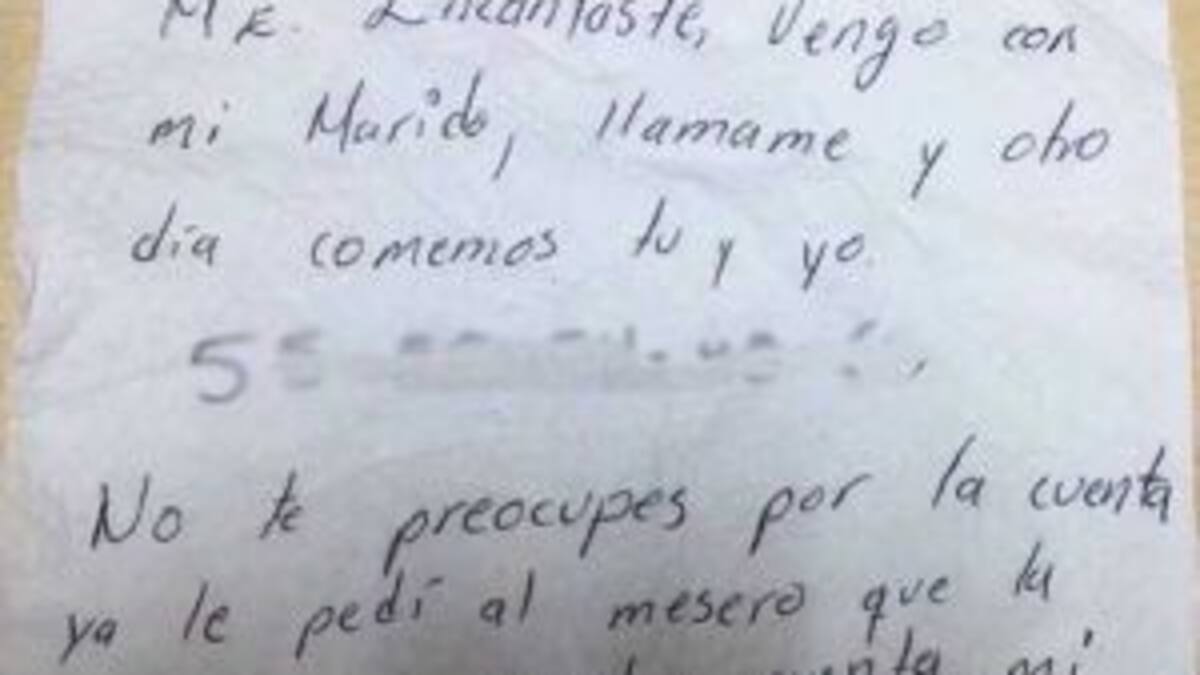 Me. Encantaste, Vengo con
mi Marido, llamame y otro
día comemos tu y yo.
5
No te preocupes por la cuenta
ya le pedí al mesero que la
mi